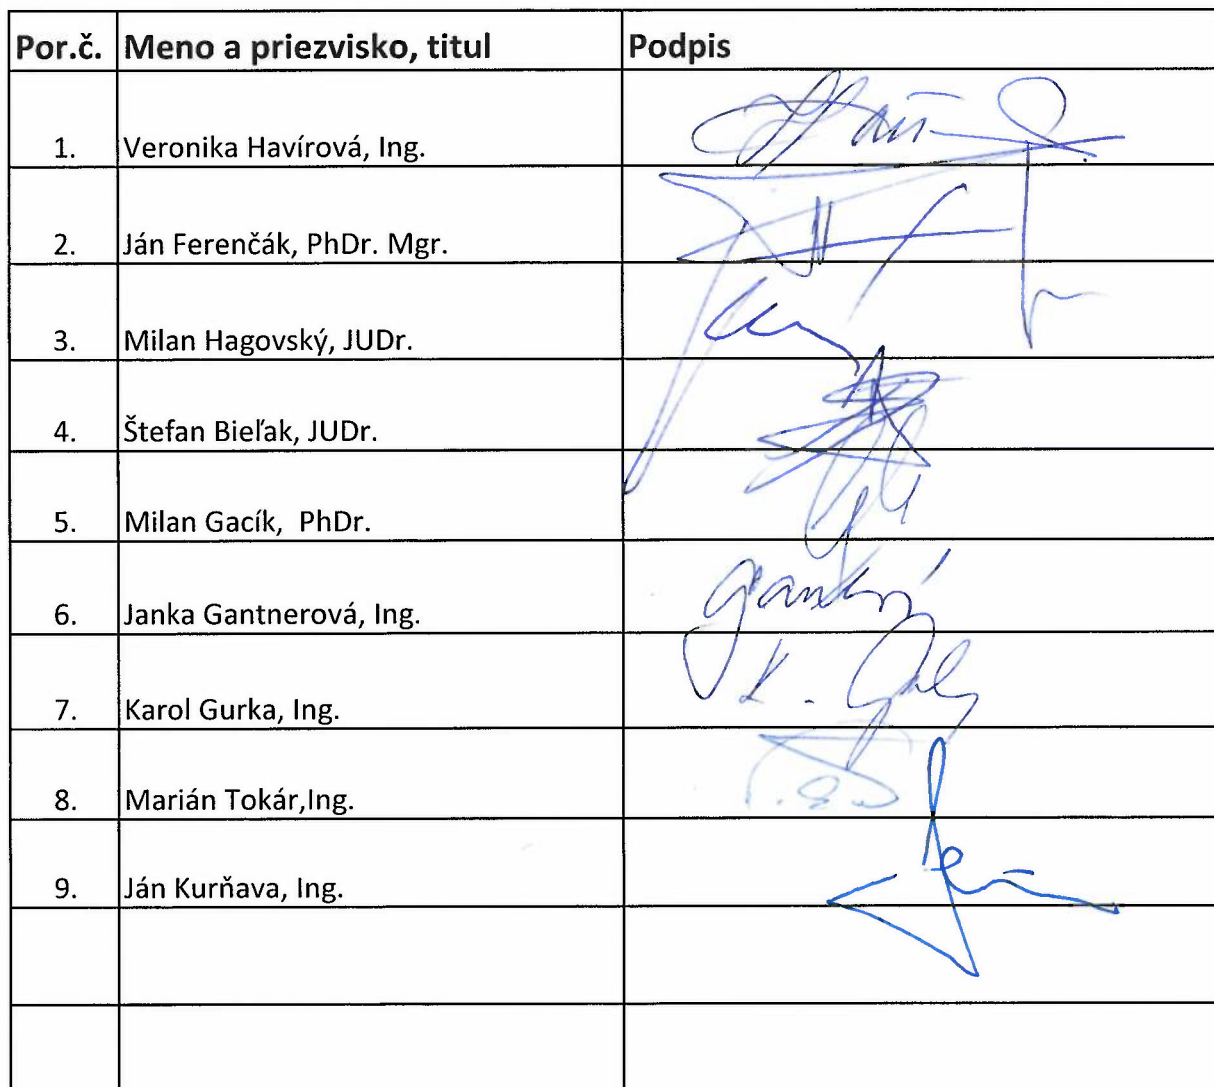 Por.č. Meno a priezvisko, titul Podpis
1. Veronika Havírová, Ing.
2. Ján Ferenčák, PhDr. Mgr.
3. Milan Hagovský, JUDr.
4. Štefan Bieľak, JUDr.
5. Milan Gacík,  PhDr.
6. Janka Gantnerová, Ing.
7. Karol Gurka, Ing.
8. Marián Tokár,Ing.
9. Ján Kurňava, Ing.